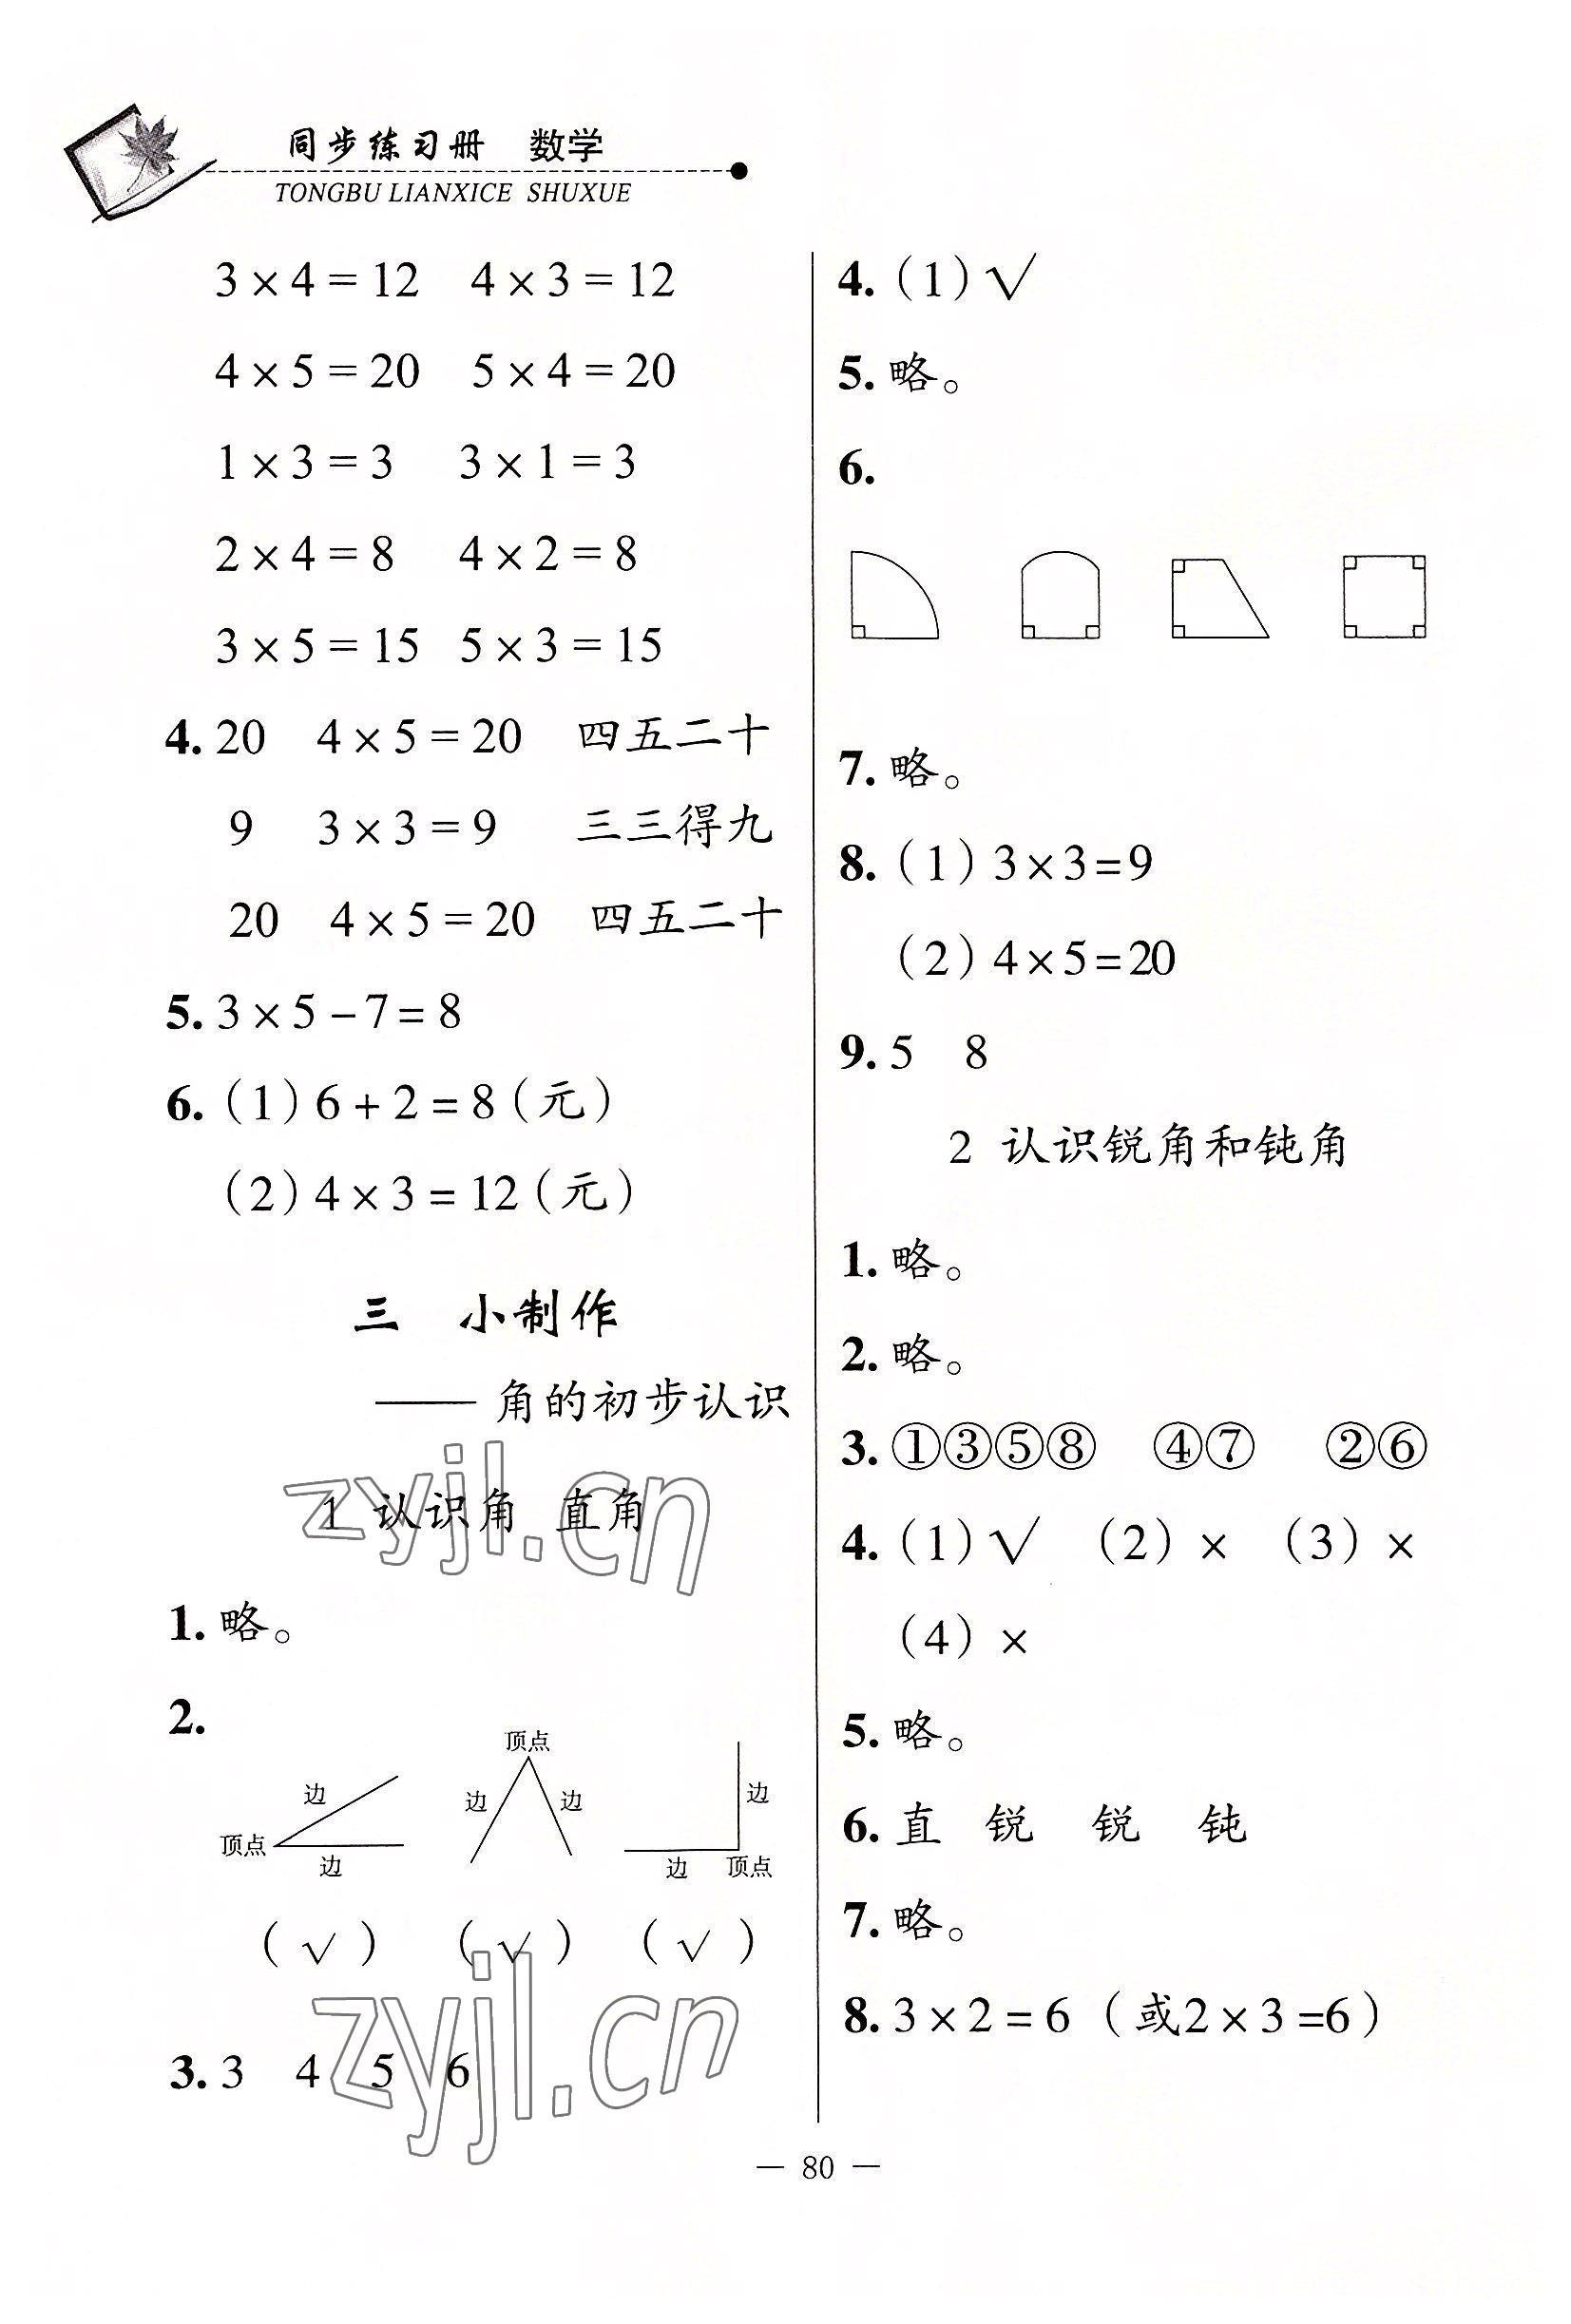 同步练习册 数学
TONGBU LIANXICE SHUXUE
3 × 4 = 12 4 × 3 = 12
4 × 5 = 20 5 × 4 = 20
1 × 3 = 3 3 × 1 = 3
2 × 4 = 8 4 × 2 = 8
3 × 5 = 15 5 × 3 = 15
4. 20 4 × 5 = 20 四五二十
9 3 × 3 = 9 三三得九
20 4 × 5 = 20 四五二十
5. 3 × 5 － 7 = 8
6.（1）6 + 2 = 8（元）
（2）4 × 3 = 12（元）
三 小制作
—— 角的初步认识
1 认识角 直角
zyjl.cn
1. 略。
2.
顶点 边 边
顶点 边 边
边 边 顶点
（ √ ）（ √ ）（ √ ）
zyjl.cn
3. 3 4 5 6
4.（1）√
5. 略。
6.
7. 略。
8.（1）3×3=9
（2）4×5=20
9. 5 8
2 认识锐角和钝角
1. 略。
2. 略。
3. ①③⑤⑧ ④⑦ ②⑥
4.（1）√ （2）× （3）×
（4）×
5. 略。
6. 直 锐 锐 钝
7. 略。
8. 3 × 2 = 6（或2 × 3 =6）
— 80 —